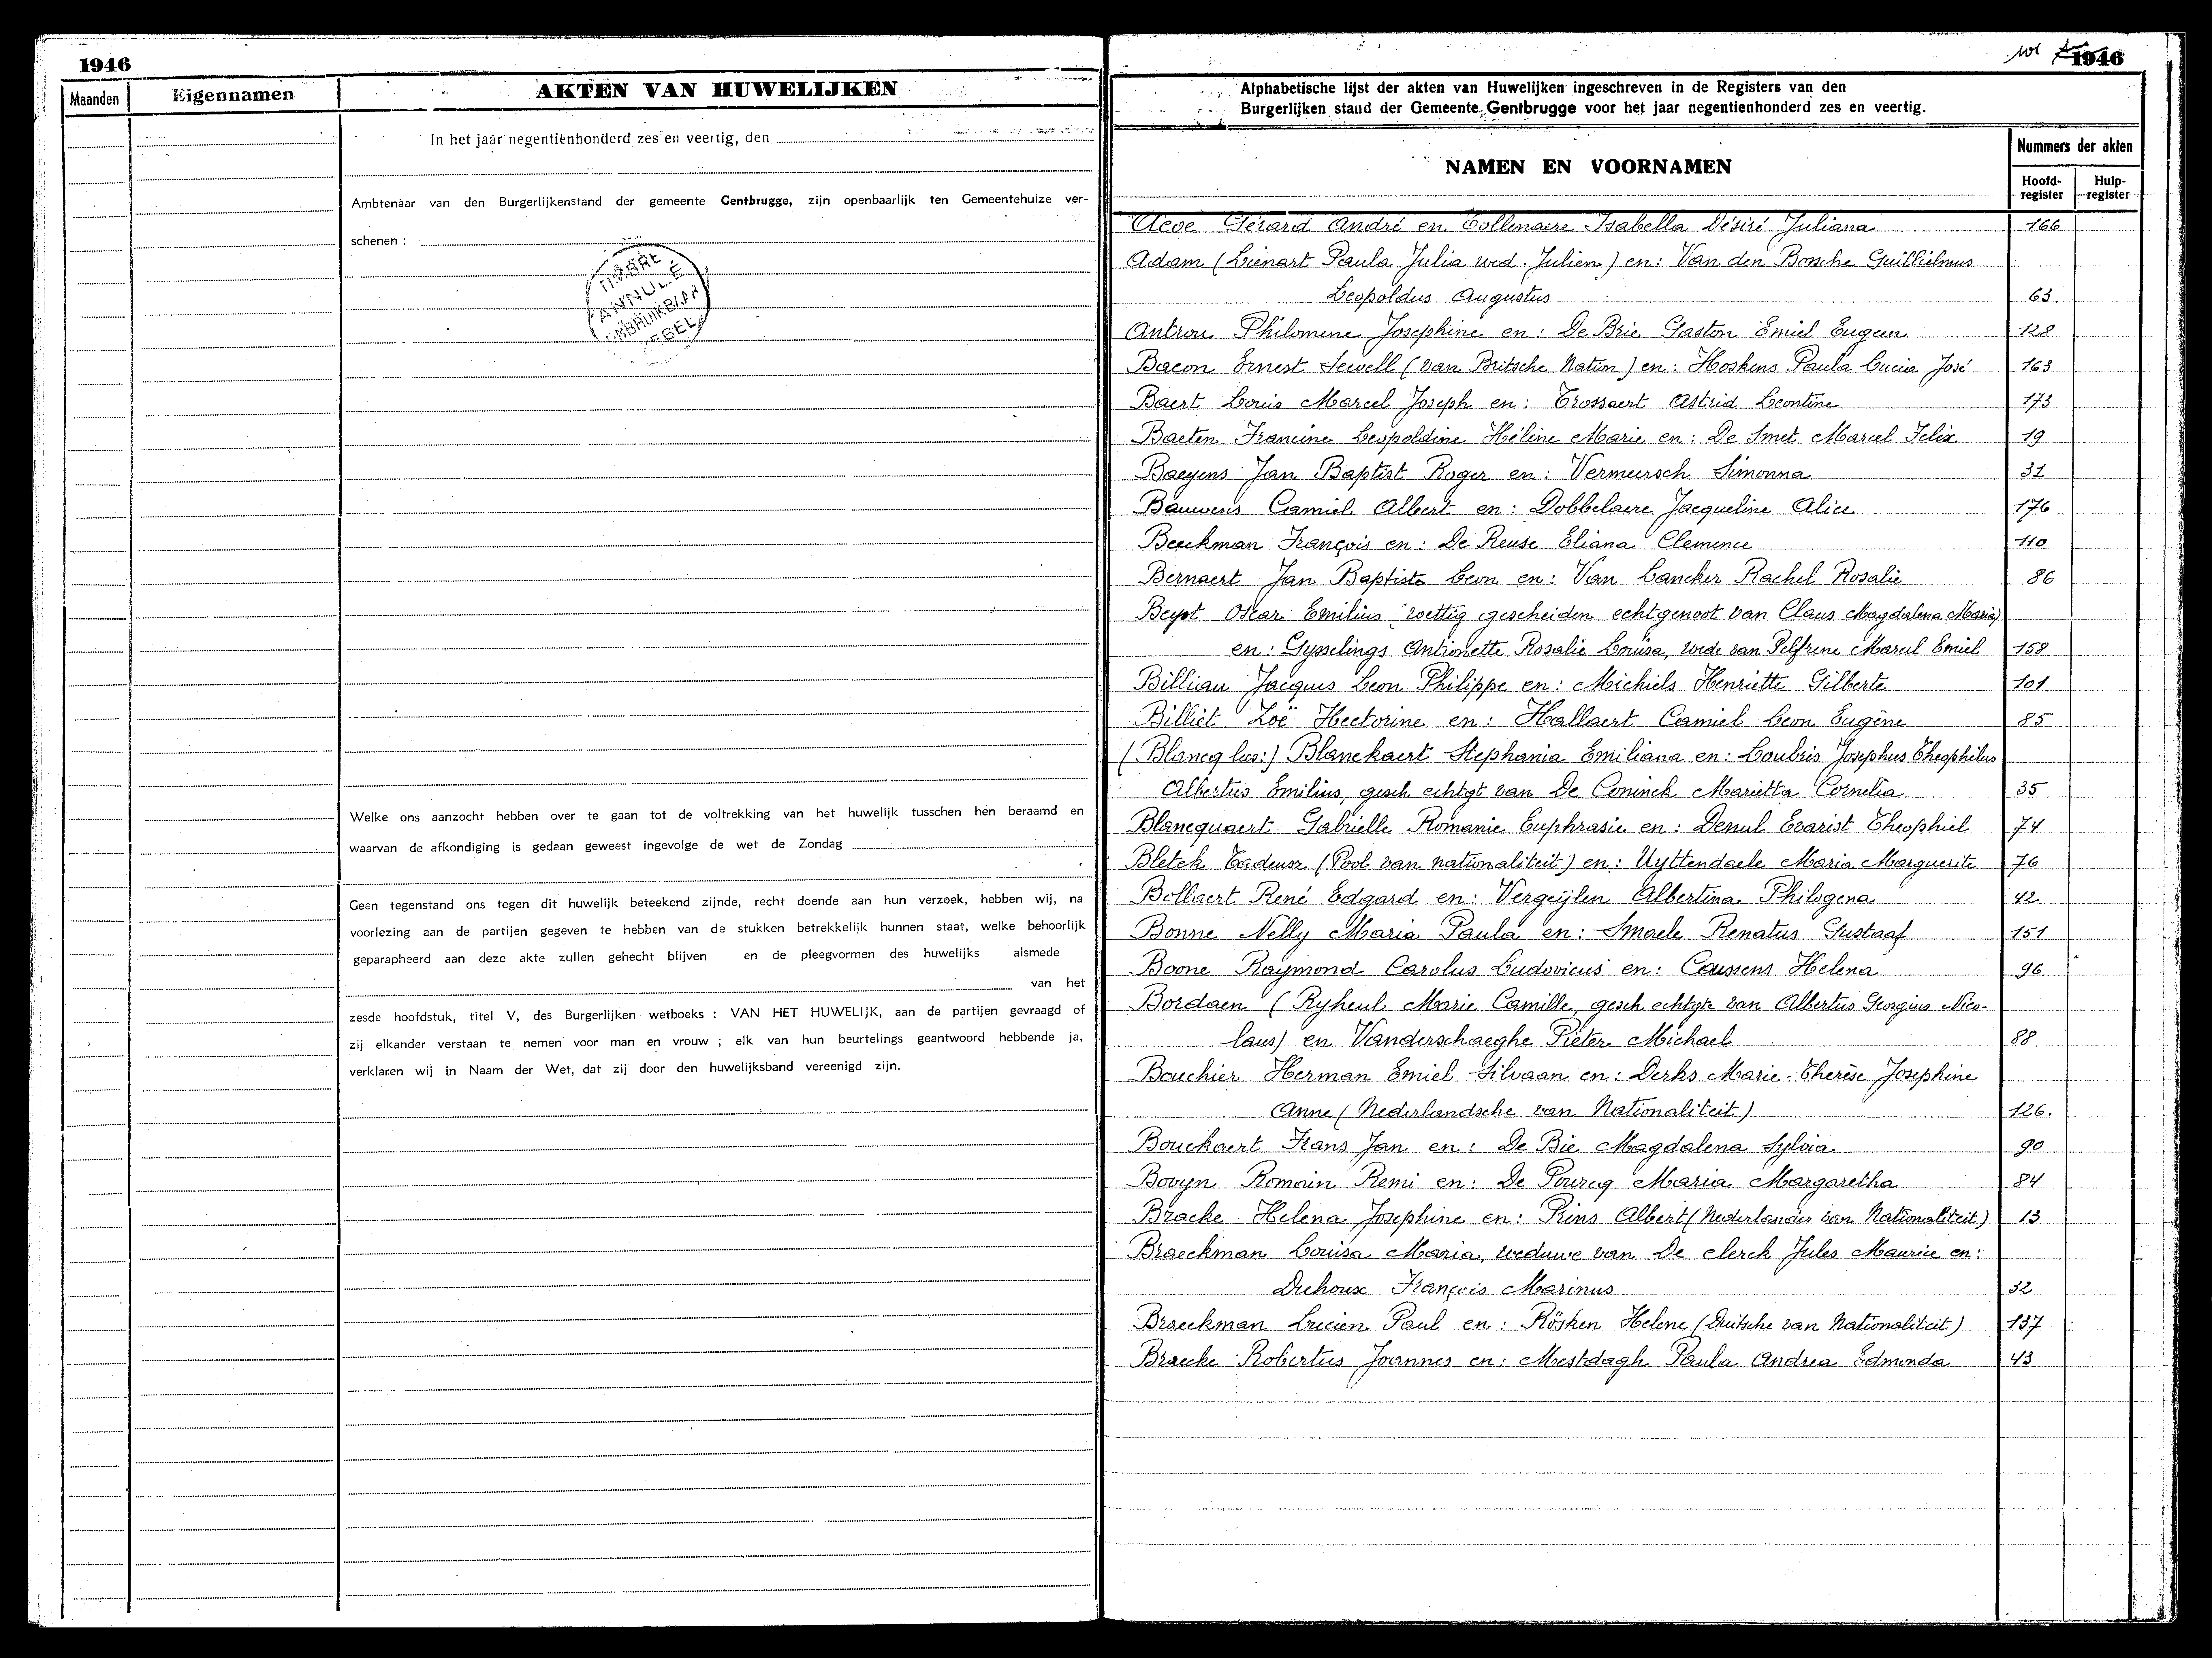 1946
Maanden
Eigennamen
AKTEN VAN HUWELIJKEN
In het jaar negentienhonderd zes en veertig, den
Ambtenaar van den Burgerlijkenstand der gemeente Gentbrugge, zijn openbaarlijk ten Gemeentehuize ver-
schenen :
TIMBRE
ANNULÉ
ONBRUIKBAAR
ZEGEL
Welke ons aanzocht hebben over te gaan tot de voltrekking van het huwelijk tusschen hen beraamd en
waarvan de afkondiging is gedaan geweest ingevolge de wet de Zondag
Geen tegenstand ons tegen dit huwelijk beteekend zijnde, recht doende aan hun verzoek, hebben wij, na
voorlezing aan de partijen gegeven te hebben van de stukken betrekkelijk hunnen staat, welke behoorlijk
geparapheerd aan deze akte zullen gehecht blijven en de pleegvormen des huwelijks alsmede
van het
zesde hoofdstuk, titel V, des Burgerlijken wetboeks : VAN HET HUWELIJK, aan de partijen gevraagd of
zij elkander verstaan te nemen voor man en vrouw ; elk van hun beurtelings geantwoord hebbende ja,
verklaren wij in Naam der Wet, dat zij door den huwelijksband vereenigd zijn.
1946
Alphabetische lijst der akten van Huwelijken ingeschreven in de Registers van den
Burgerlijken stand der Gemeente Gentbrugge voor het jaar negentienhonderd zes en veertig.
NAMEN EN VOORNAMEN
Nummers der akten
Hoofd-register
Hulp-register
Gérard André en Tollenaere Isabella Désiré Juliana 166
Adam (Liénart Paula Julia wed. Julien) en: Van den Bossche Guillielmus
Leopoldus Augustus 63.
Antrou Philomene Josephine en: De Brie Gaston Emiel Eugeen 128
Bacon Ernest Sewell (van Britsche Nation) en: Hoskens Paula Lucia José 163
Baert Louis Marcel Joseph en: Trossaert Astrid Leontine 173
Baeten Francine Leopoldine Hélène Marie en: De Smet Marcel Felix 19
Baeyens Jan Baptist Roger en: Vermeersch Simonna 31
Bauwens Camiel Albert en: Dobbelaere Jacqueline Alice 176
Beeckman François en: De Reuse Eliana Clemence 110
Bernaert Jan Baptiste Leon en: Van Lancker Rachel Rosalie 86
Beyst Oscar Emilius (wettig gescheiden echtgenoot van Claus Magdalena Maria)
en: Gysselings Antionette Rosalie Louisa, wede van Pelfrene Marcel Emiel 158
Billiau Jacques Leon Philippe en: Michiels Henriette Gilberte 101
Billiet Zoë Hectorine en: Hallaert Camiel Leon Eugène 85
(Blancq les:) Blanckaert Stephania Emiliana en: Loubris Josephus Theophilus
Albertus Emilius, gesch echtgt van De Coninck Marietta Cornelia 35
Blancquaert Gabrielle Romanie Euphrasie en: Denul Evarist Theophiel 74
Bletek Tadeusz (Pool van nationaliteit) en: Uyttendaele Maria Marguerite 76
Bollaert René Edgard en: Vergeijlen Albertina Philogena 42
Bonne Nelly Maria Paula en: Smaele Renatus Gustaaf 151
Boone Raymond Carolus Ludovicus en: Caussens Helena 96
Bordaen (Ryheul Marie Camille, gesch echtgte van Albertus Georgius Nico-
laus) en Vanderschaeghe Pieter Michael 88
Bouchier Herman Emiel Silvaan en: Derks Marie-Therèse Josephine
Anne (Nederlandsche van Nationaliteit) 126.
Bouckaert Frans Jan en: De Bie Magdalena Sylvia 90
Bovyn Romain Remi en: De Pourcq Maria Margaretha 84
Bracke Helena Josephine en: Prins Albert (Nederlander van Nationaliteit) 13
Braeckman Louisa Maria, weduwe van De clerck Jules Maurice en:
Duhoux François Marinus 32
Braeckman Lucien Paul en: Rösken Helene (Duitsche van Nationaliteit) 137
Braecke Robertus Joannes en: Mestdagh Paula Andrea Edmonda 43